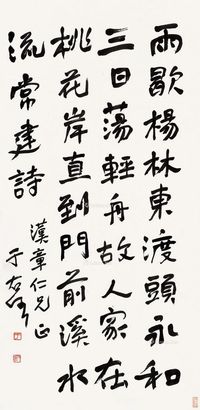 雨歇楊林東渡頭永和
三日蕩輕舟故人家在
桃花岸直到門前溪水
流常建詩
漢章仁兄正
于右任